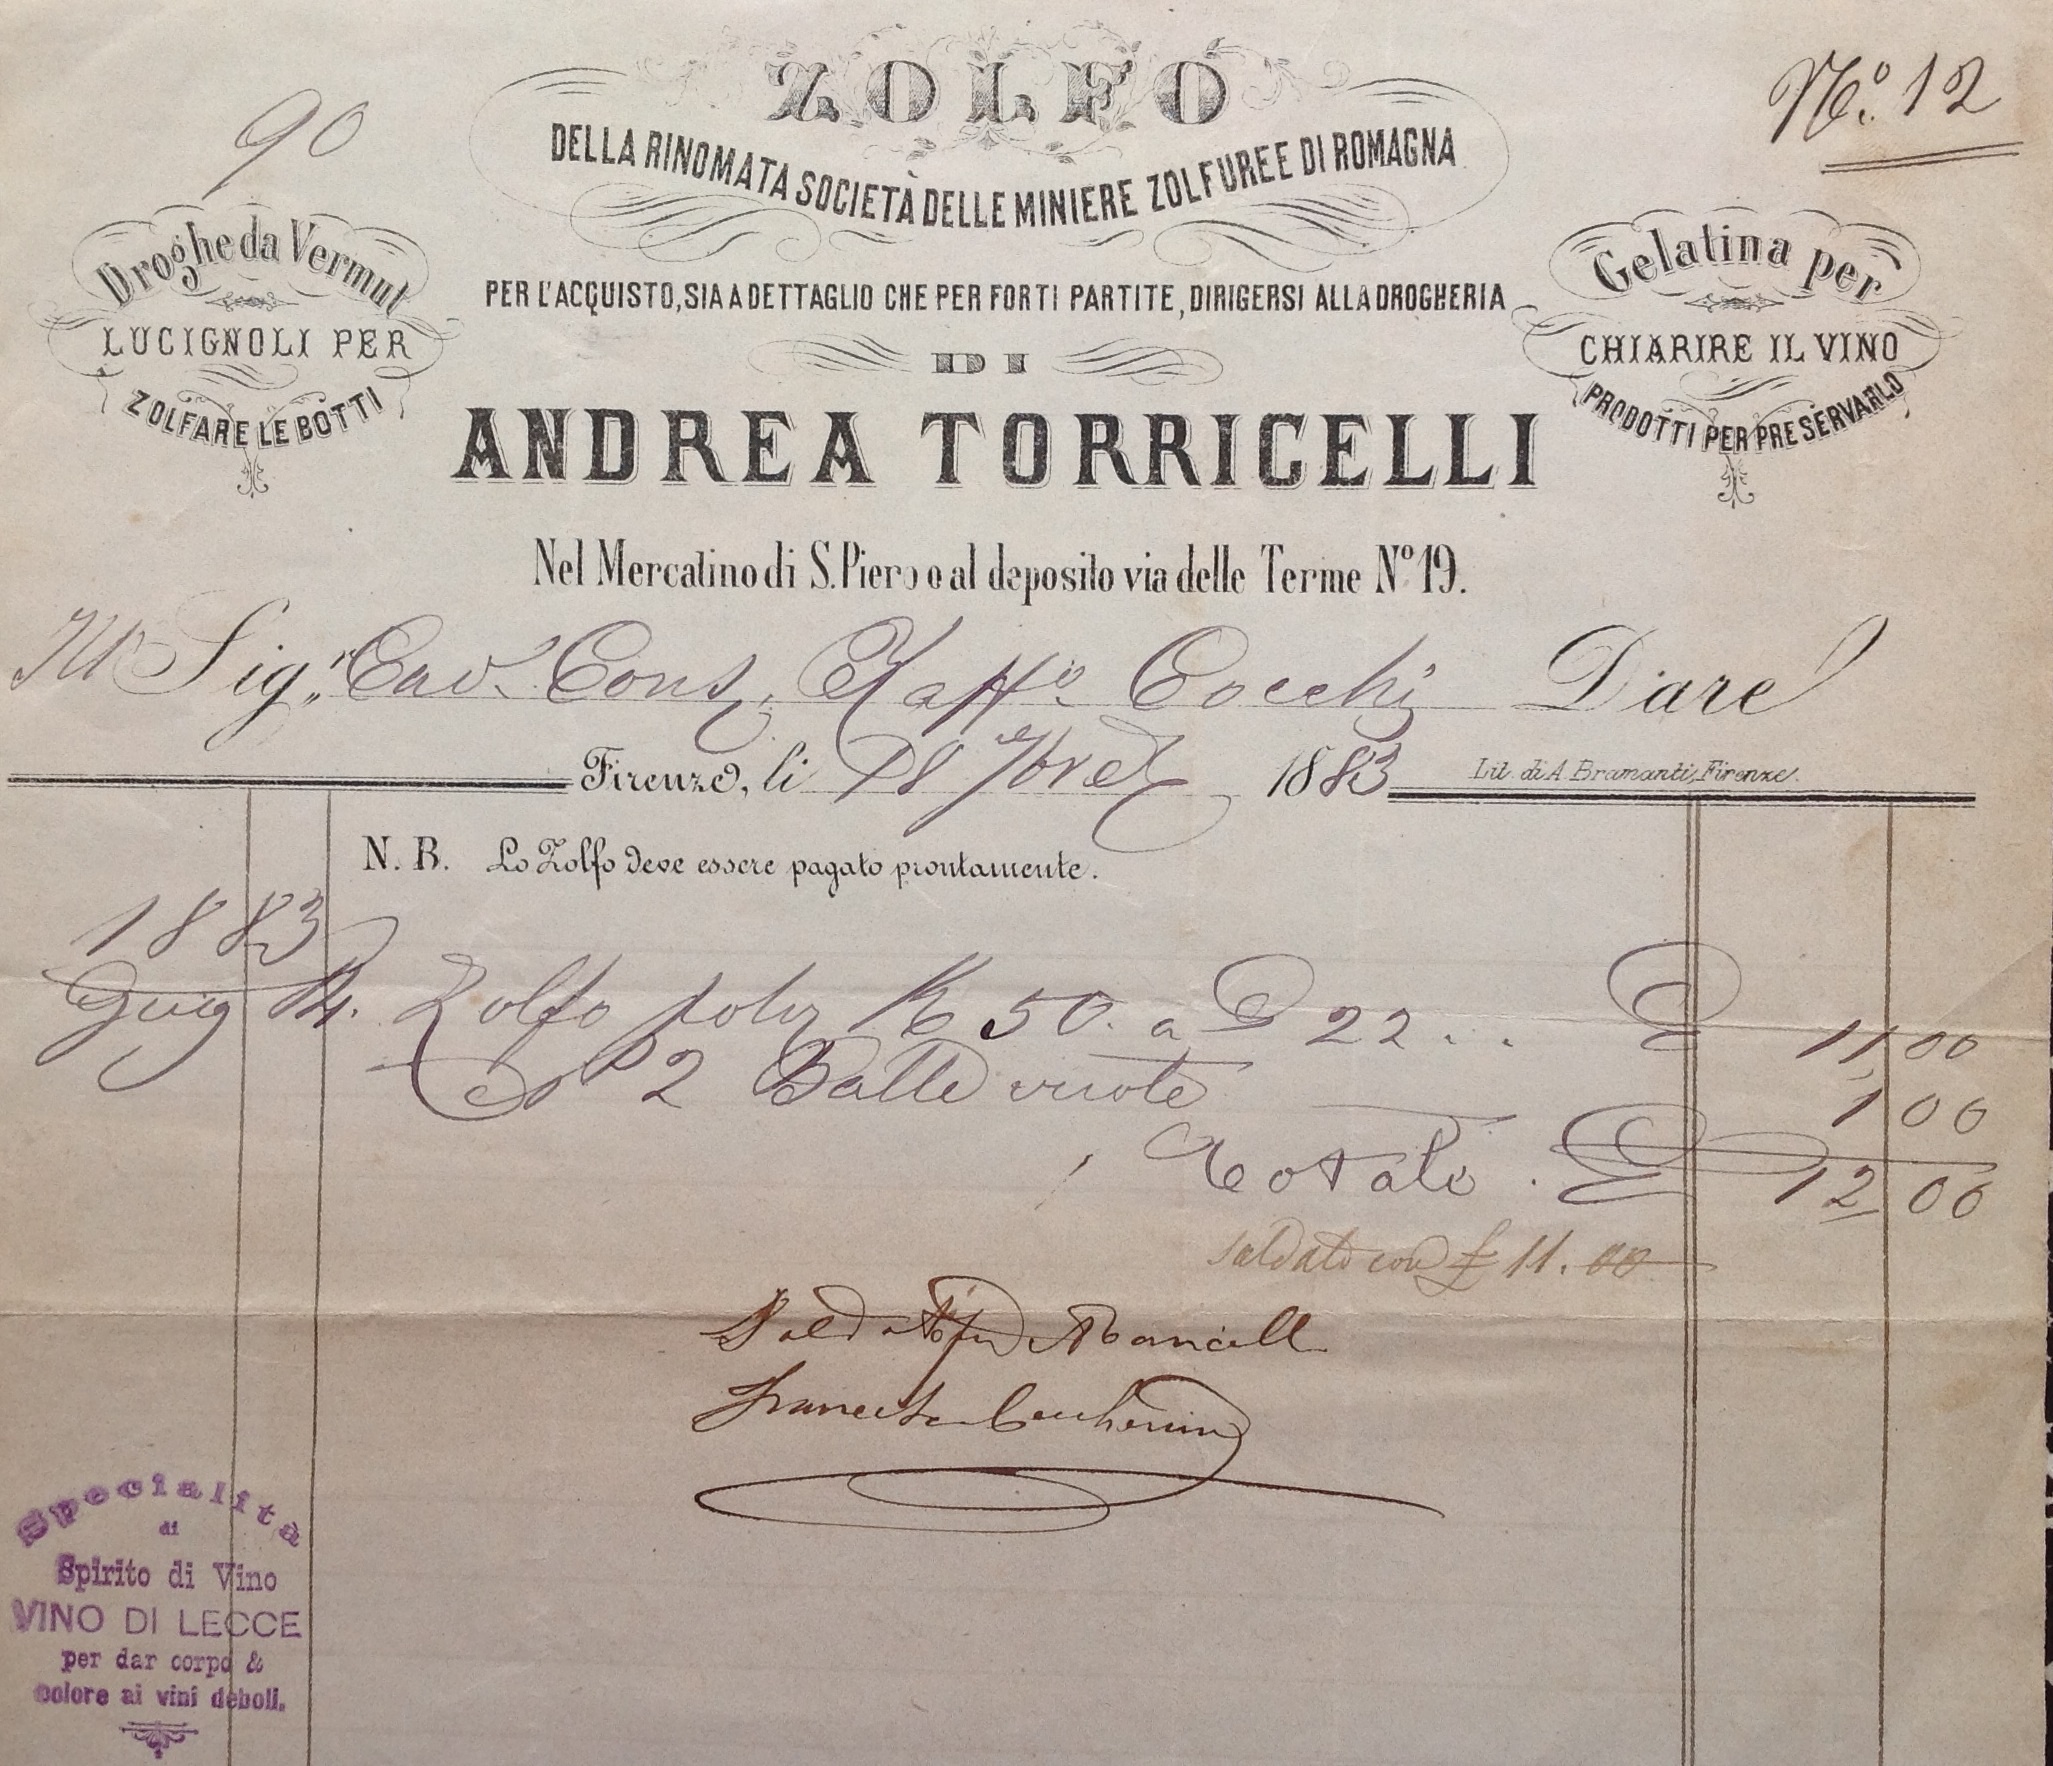 ZOLFO
Nº. 12
90
DELLA RINOMATA SOCIETÀ DELLE MINIERE ZOLFUREE DI ROMAGNA
Droghe da Vermut
LUCIGNOLI PER
ZOLFARE LE BOTTI
Gelatina per
CHIARIRE IL VINO
PRODOTTI PER PRESERVARLO
PER L'ACQUISTO, SIA A DETTAGLIO CHE PER FORTI PARTITE, DIRIGERSI ALLA DROGHERIA
DI
ANDREA TORRICELLI
Nel Mercatino di S. Piero o al deposito via delle Terme Nº 19.
Sigr. Cav. Cocchi Dare
Firenze, li 18 1883
Lit. di A. Bramanti, Firenze.
N. B. Lo Zolfo deve essere pagato prontamente.
1883
Giug Zolfo K 50. a £ 22 .. £ 11,00
2 Balle vuote 1,00
Totale. £ 12 00
saldato con £ 11.00
Specialità
di
Spirito di Vino
VINO DI LECCE
per dar corpo &
colore ai vini deboli.